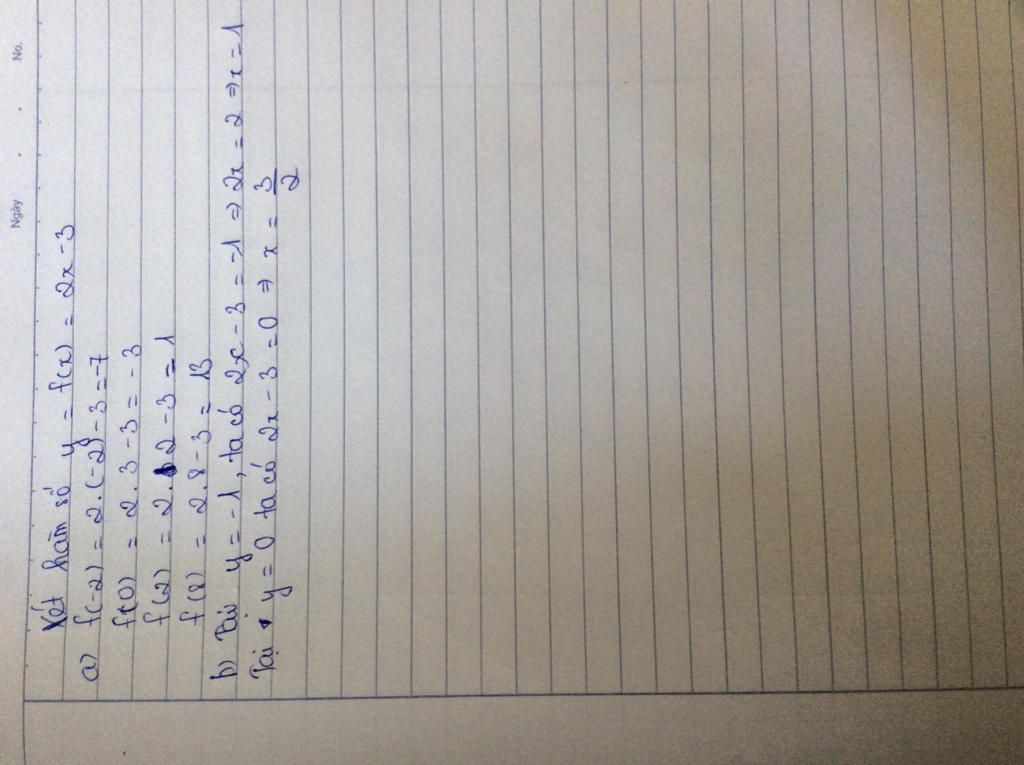 Ngày . . No.
Xét hàm số y = f(x) = 2x - 3
a) f(-2) = 2.(-2) - 3 = -7
f(0) = 2.3 - 3 = -3
f(2) = 2.2 - 3 = 1
f(8) = 2.8 - 3 = 13
b) Tại y = -1, ta có 2x - 3 = -1 ⇒ 2x = 2 ⇒ x = 1
Tại y = 0 ta có 2x - 3 = 0 ⇒ x = 3/2